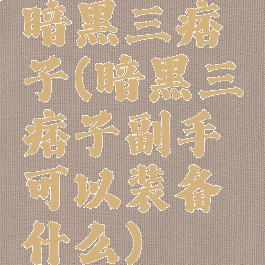 暗黑三痞
子(暗黑三
痞子副手
可以装备
什么)